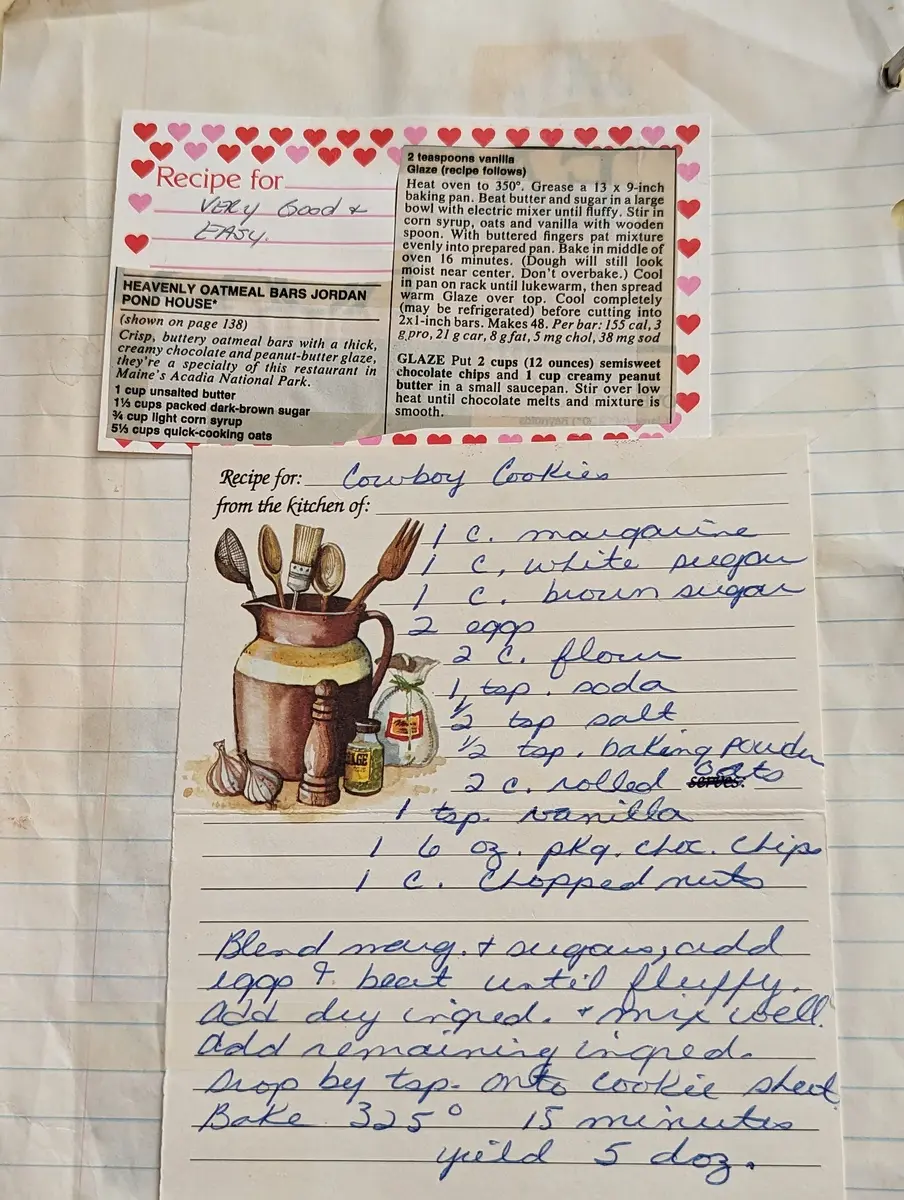 Recipe for
VERY Good &
EASY.
HEAVENLY OATMEAL BARS JORDAN
POND HOUSE*
(shown on page 138)
Crisp, buttery oatmeal bars with a thick,
creamy chocolate and peanut-butter glaze,
they're a specialty of this restaurant in
Maine's Acadia National Park.
1 cup unsalted butter
1⅓ cups packed dark-brown sugar
¾ cup light corn syrup
5⅓ cups quick-cooking oats
2 teaspoons vanilla
Glaze (recipe follows)
Heat oven to 350°. Grease a 13 x 9-inch
baking pan. Beat butter and sugar in a large
bowl with electric mixer until fluffy. Stir in
corn syrup, oats and vanilla with wooden
spoon. With buttered fingers pat mixture
evenly into prepared pan. Bake in middle of
oven 16 minutes. (Dough will still look
moist near center. Don't overbake.) Cool
in pan on rack until lukewarm, then spread
warm Glaze over top. Cool completely
(may be refrigerated) before cutting into
2x1-inch bars. Makes 48. Per bar: 155 cal, 3
g pro, 21 g car, 8 g fat, 5 mg chol, 38 mg sod
GLAZE Put 2 cups (12 ounces) semisweet
chocolate chips and 1 cup creamy peanut
butter in a small saucepan. Stir over low
heat until chocolate melts and mixture is
smooth.
Recipe for: Cowboy Cookies
from the kitchen of:
1 c. margarine
1 c. white sugar
1 c. brown sugar
2 eggs
2 c. flour
1 tsp. soda
½ tsp salt
½ tsp. baking powder
2 c. rolled oats
serves:
1 tsp. vanilla
1 6 oz. pkg. choc. chips
1 c. chopped nuts
Blend marg. & sugars, add
eggs & beat until fluffy.
Add dry ingred. & mix well.
Add remaining ingred.
Drop by tsp. onto cookie sheet
Bake 325° 15 minutes
yield 5 doz.